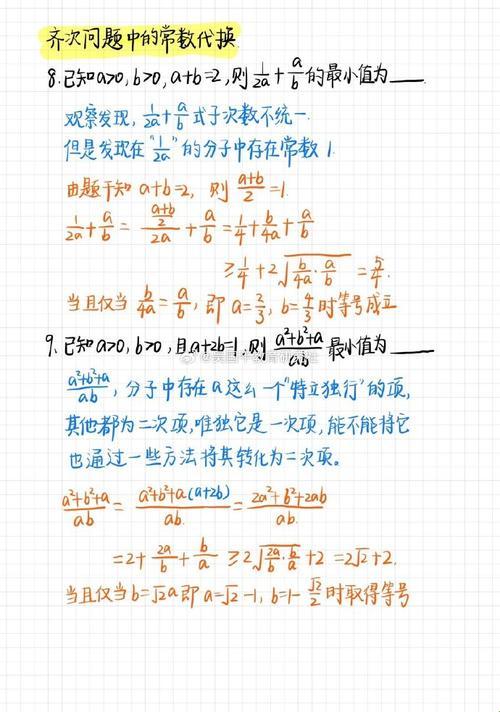 齐次问题中的常数代换
8.已知a>0,b>0,a+b=2,则1/2a+a/b的最小值为____.
观察发现,1/2a+a/b式子次数不统一.
但是发现在"1/2a"的分子中存在常数1.
由题干知a+b=2,则(a+b)/2=1.
1/2a+a/b=((a+b)/2)/2a+a/b=1/4+b/4a+a/b
≥1/4+2√(b/4a·a/b)=5/4.
当且仅当b/4a=a/b,即a=2/3,b=4/3时等号成立
9.已知a>0,b>0,且a+2b=1,则(a²+b²+a)/ab最小值为____
(a²+b²+a)/ab,分子中存在a这么一个"特立独行"的项,
其他都为二次项,唯独它是一次项,能不能将它
也通过一些方法将其转化为二次项。
(a²+b²+a)/ab=(a²+b²+a(a+2b))/ab.=(2a²+b²+2ab)/ab.
=2+2a/b+b/a≥2√(2a/b·b/a)+2=2√2+2.
当且仅当b=√2a即a=√2-1,b=1-√2/2时取得等号